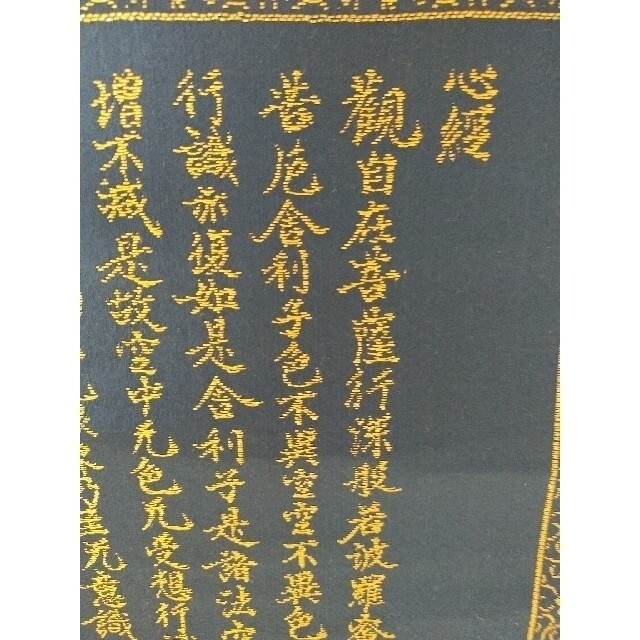 心經
觀自在菩薩行深般若波羅蜜
苦厄舍利子色不異空空不異色
行識亦復如是舍利子是諸法空
增不減是故空中无色无受想行
无意識